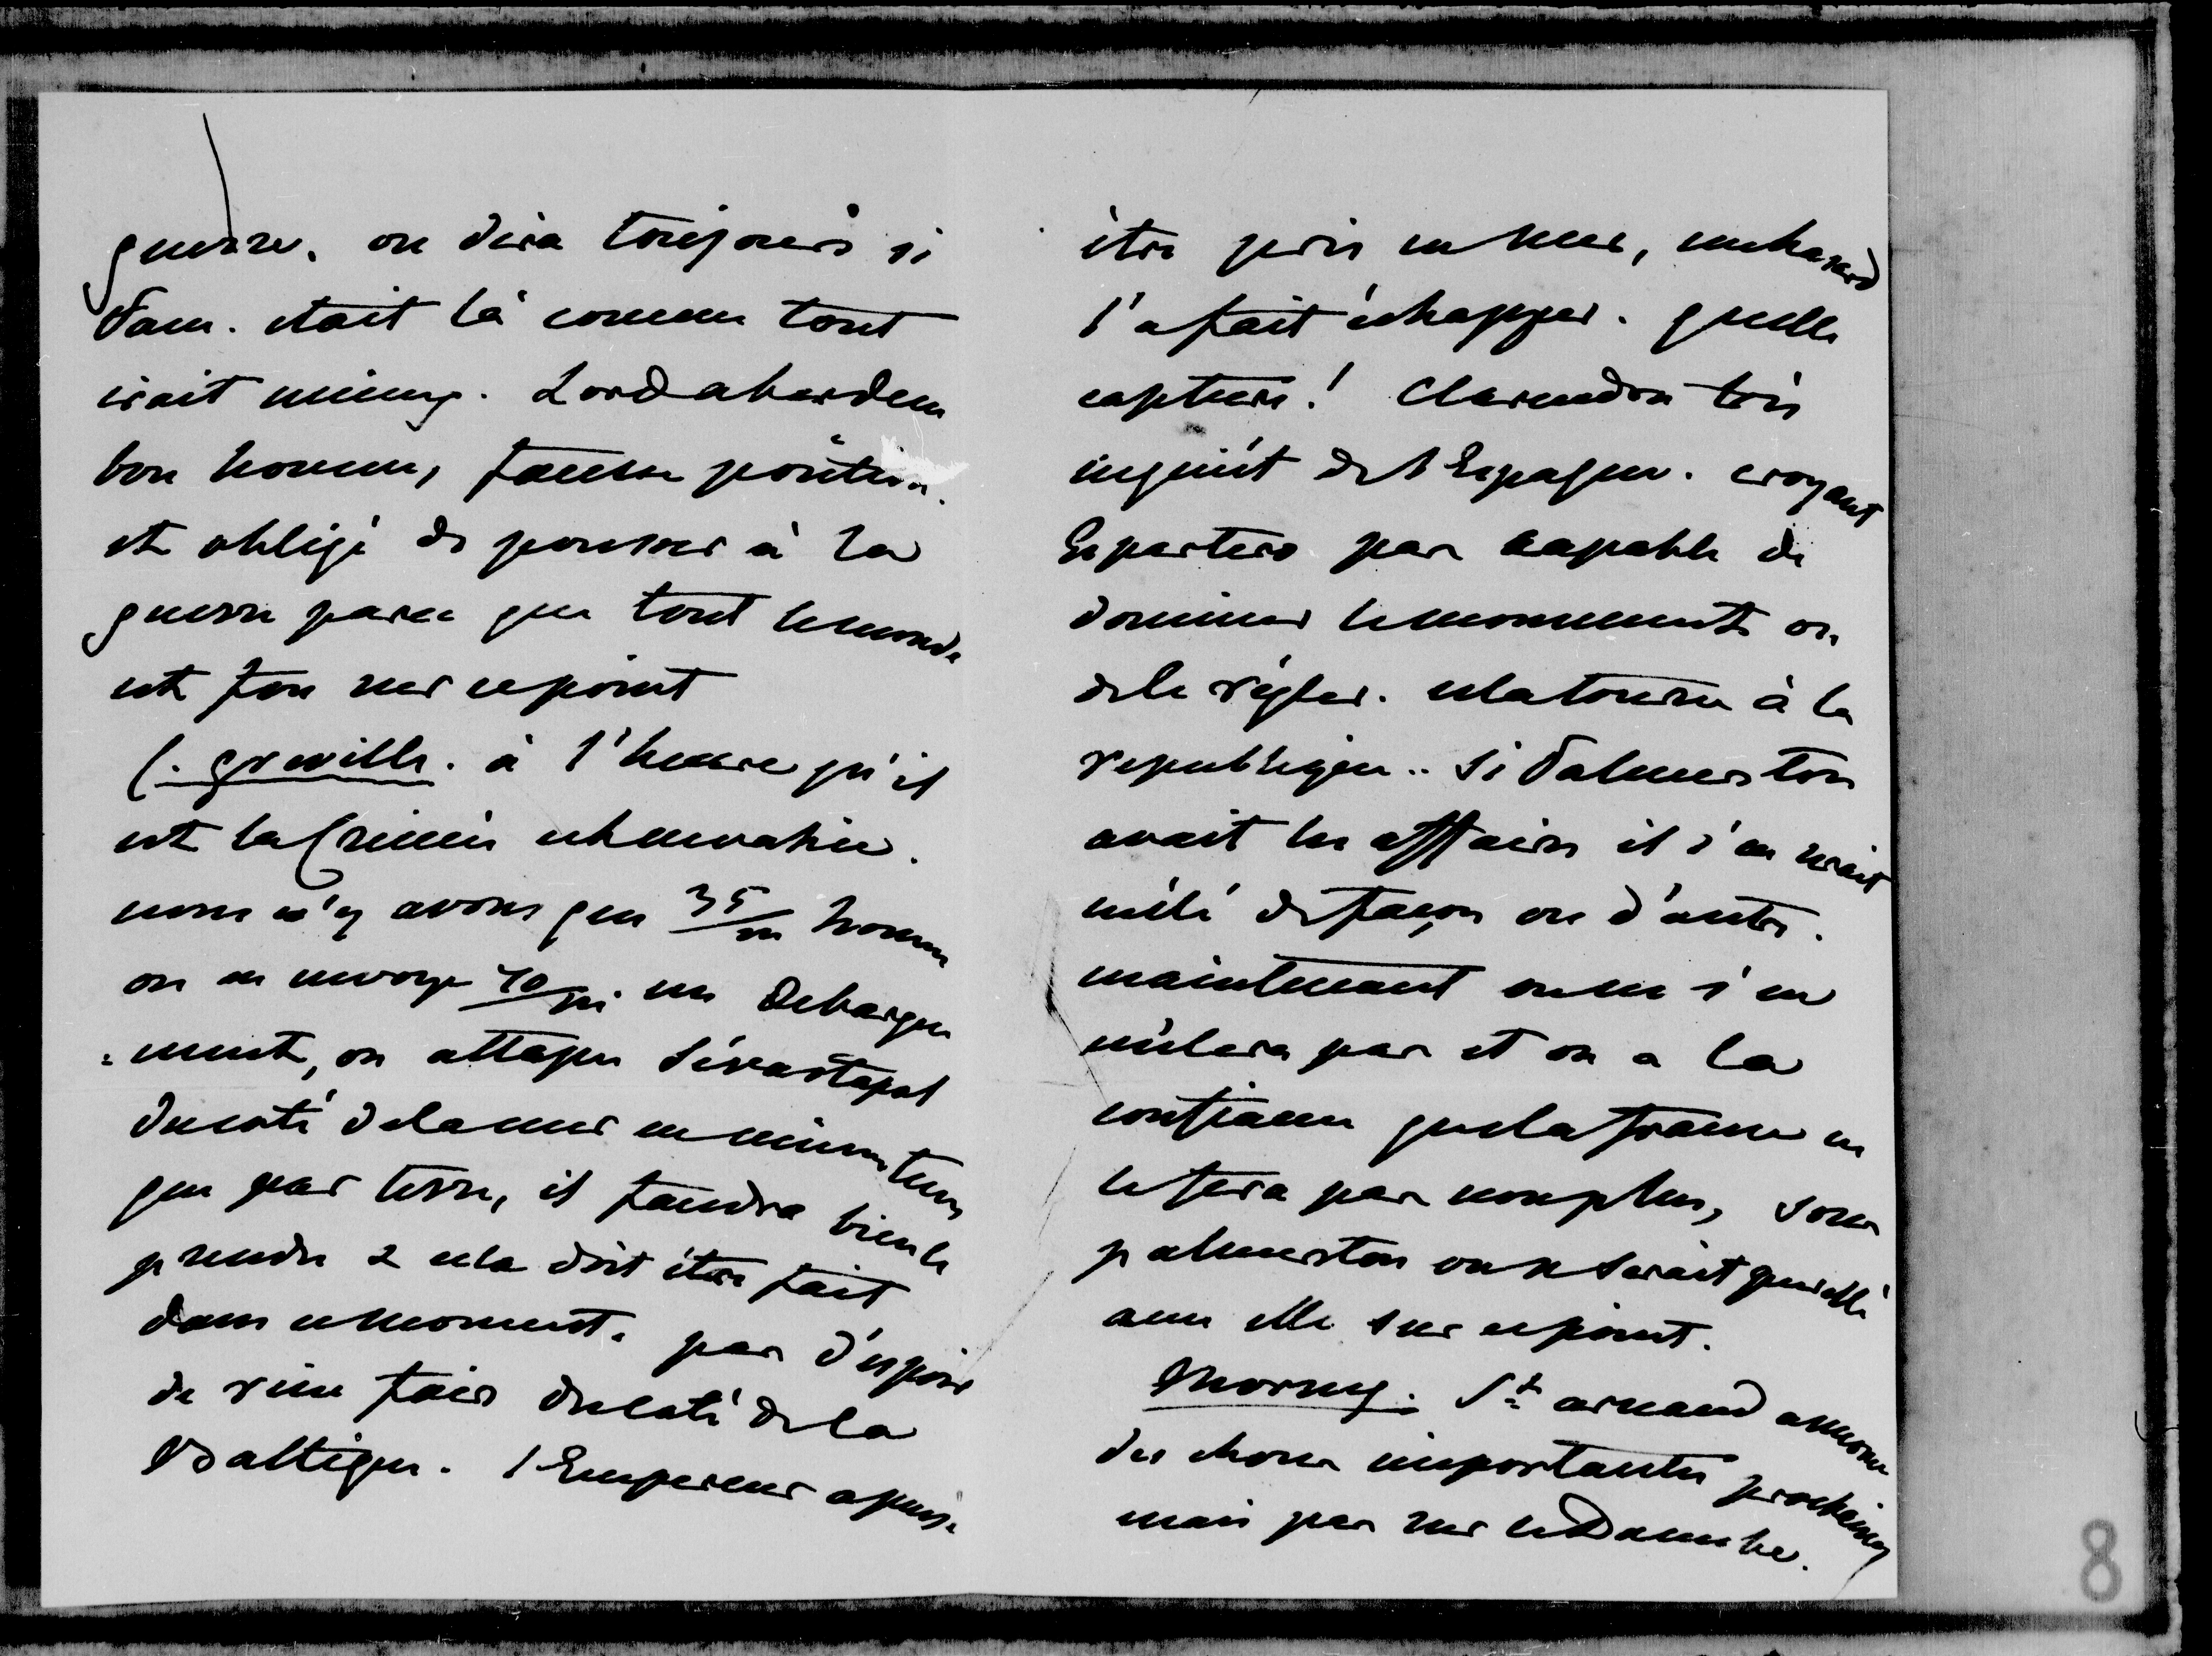 guerre. on dira toujours si
Palm. etait là comme tout
irait mieux. Lord aberdeen
bon homme, fausse position.
et obligé de pousser à la
guerre parce que tout le monde
est fou sur ce point
C. greville. à l'heure qu'il
est la Crimée est envahie.
nous n'y avons que 35/m homm
on en envoye 70/m. un debarque
=ment, on attaque Sévastopol
du coté de la mer en même tems
que par terre, il faudra bien le
prendre & cela doit être fait
dans ce moment. pas d'espoir
de rien faire du coté de la
Baltique. l'Empereur a puis.
être pris en mer, un hazard
l'a fait échapper. quelle
capture! Clarendon très
inquiet de l'Espagne. croyant
Espartero pas capable de
dominer le mouvement ou
de le régler. cela tourne à la
republique.. Si Palmerston
avait les affaires il s'en serait
mêlé de façon ou d'autre.
maintenant on ne s'en
mêlera pas et on a la
confiance que la france ne
le fera pas non plus, sous
palmerston on se serait querellé
avec elle sur ce point.
Morny. St arnaud annonce
des choses importantes prochaines
mais pas sur le Danube.
8